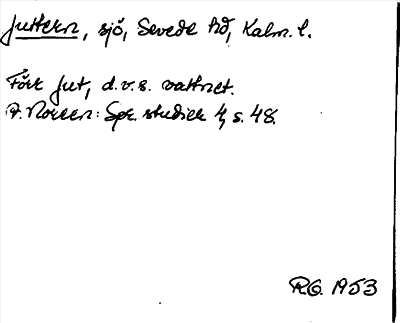 Juttern, sjö, Sevede hd, Kalm. l.
Förr Jut, d.v.s. vattnet.
A. Noreen: Spr. studier 4, s. 48.
R.G. 1953